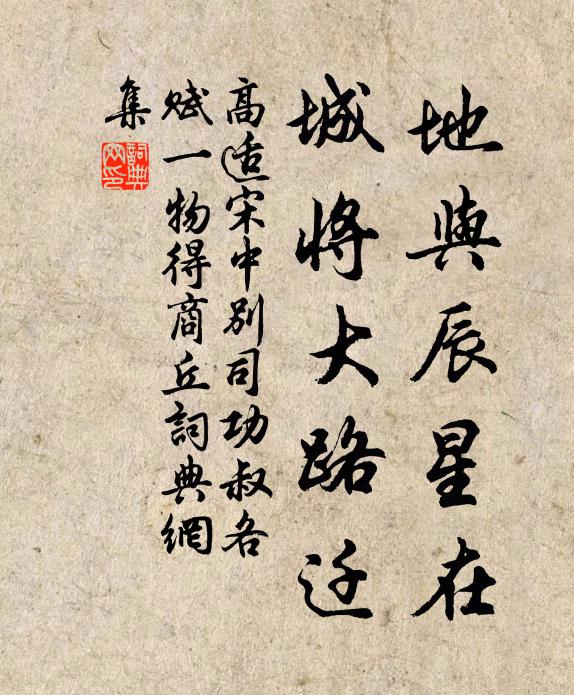 地與辰星在
城將大路迁
高适宋中別司功叔各
賦一物得商丘詞典網
集
詞典網印